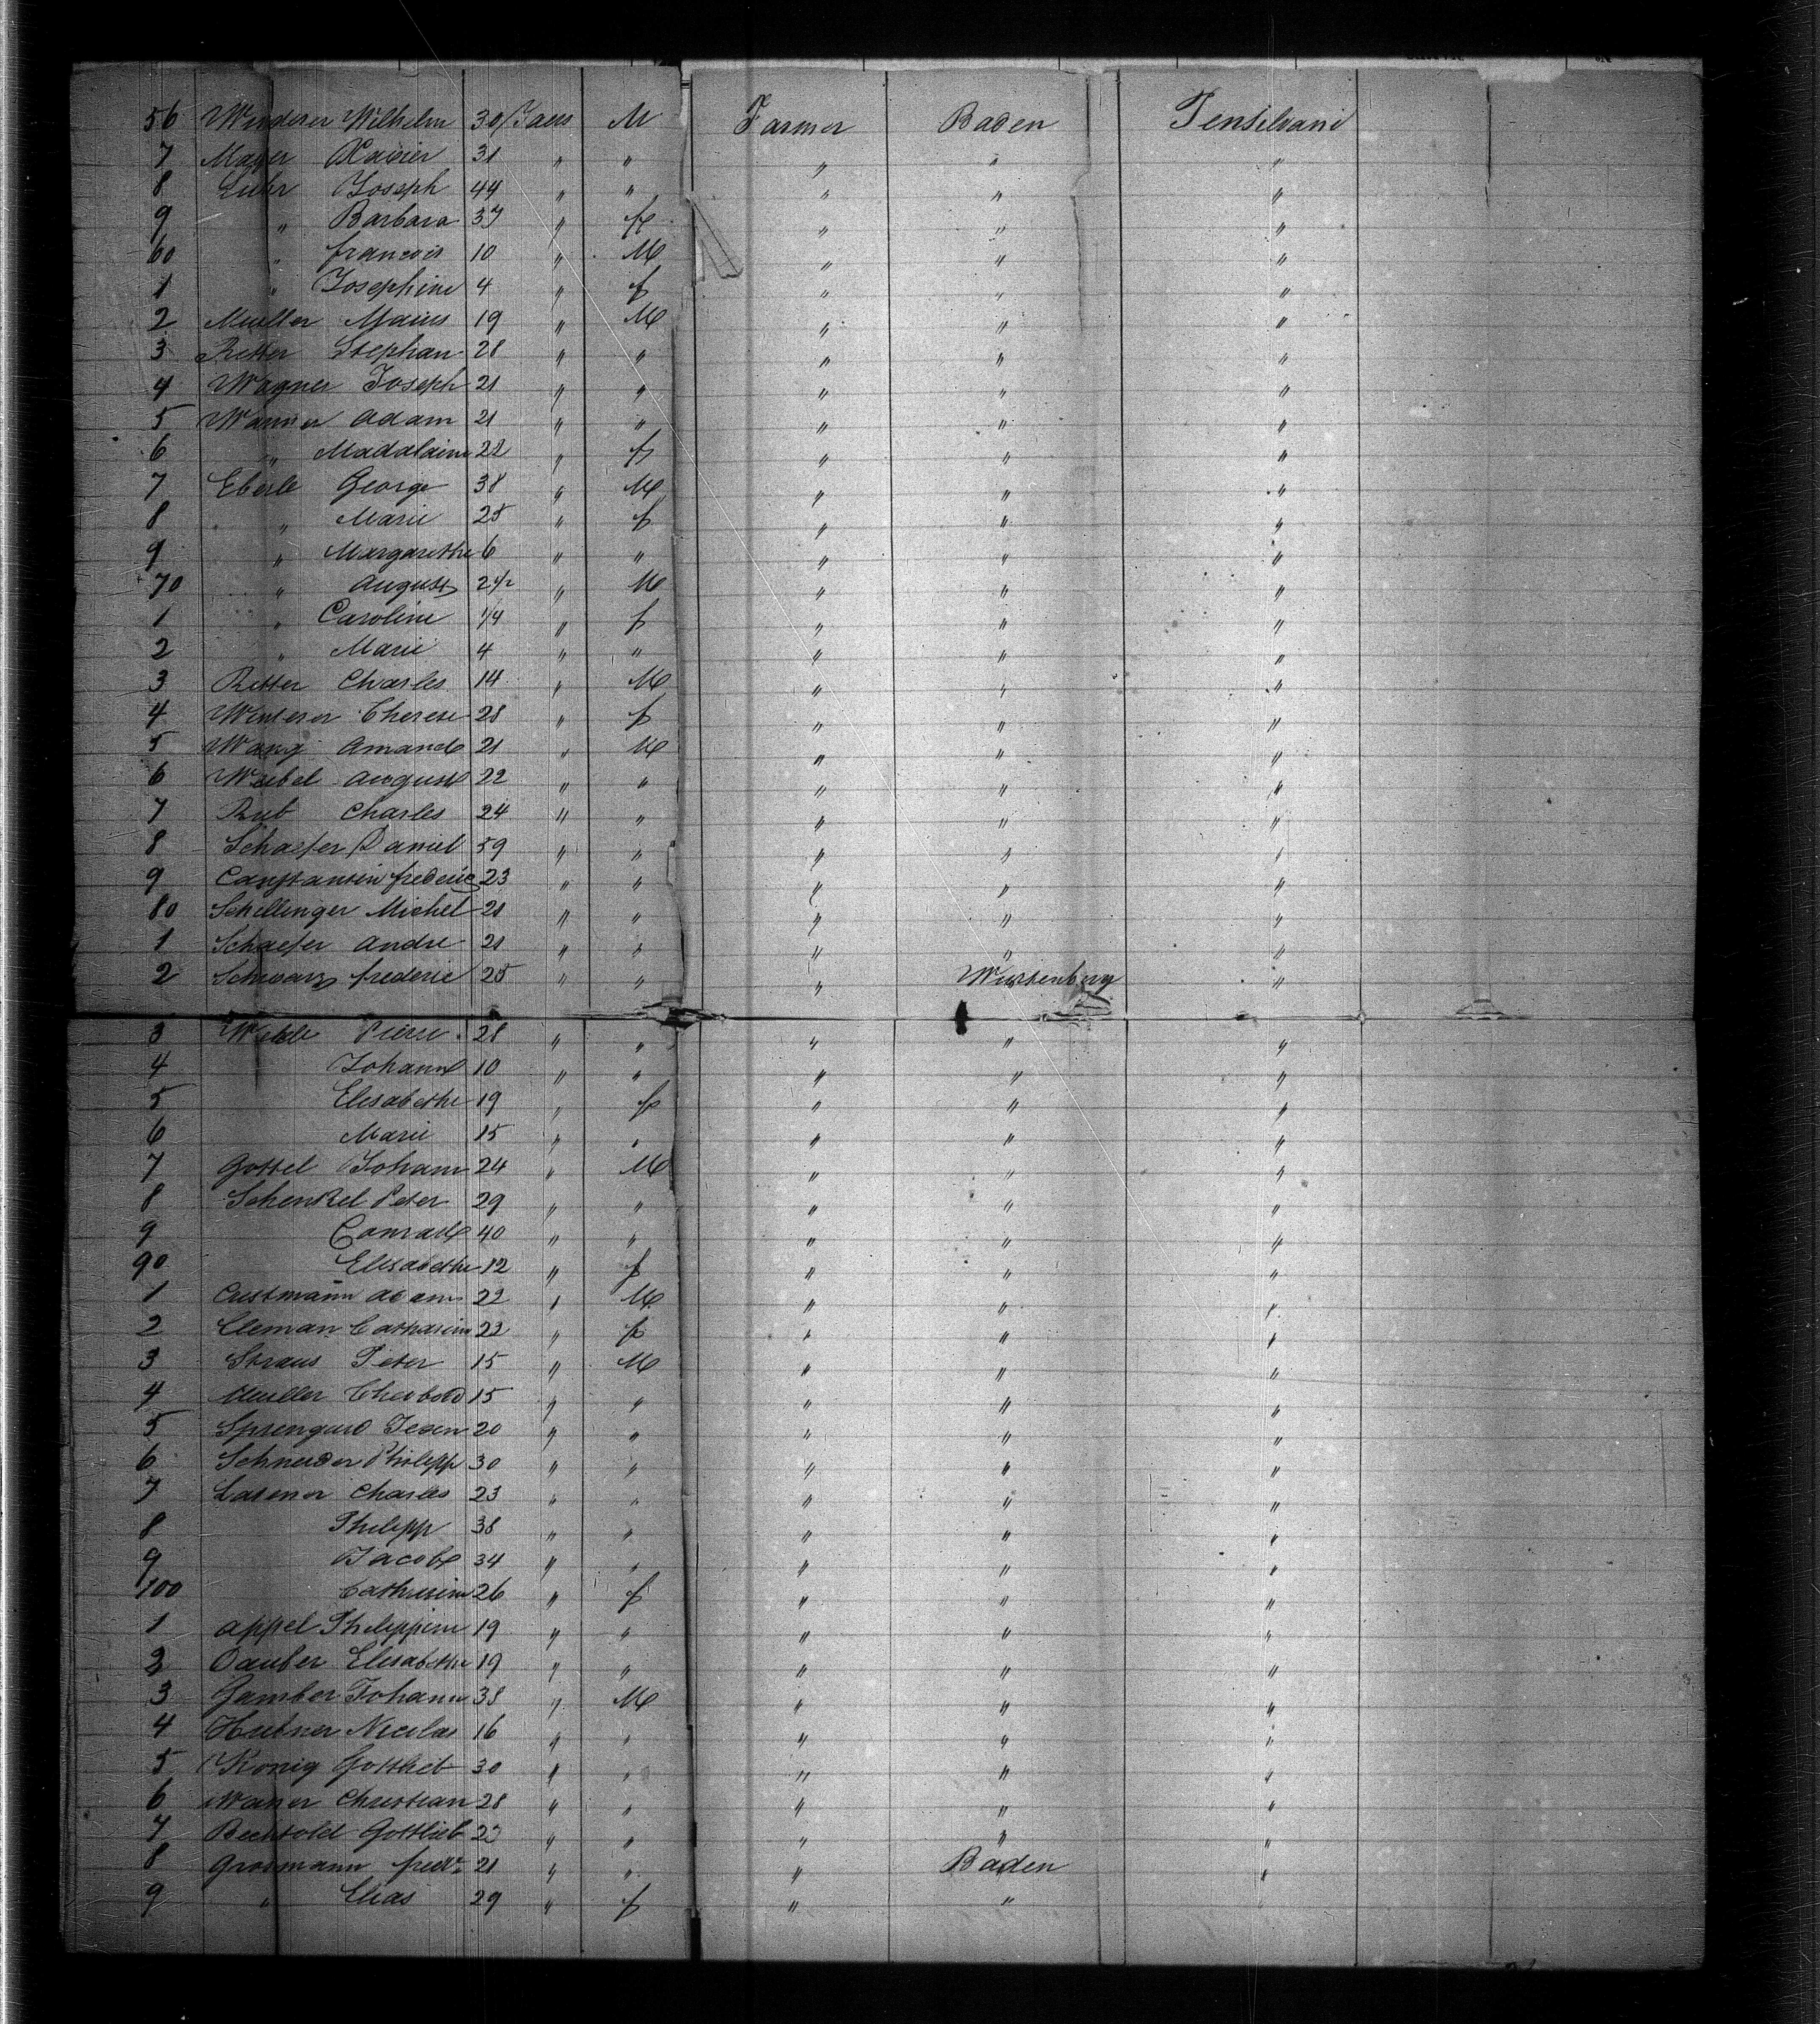 56 Winderer Wilhelm 30 Jaers M Farmer Baden Pensilvani
7 Mayer Xavier 31 " " " " "
8 Luhr Joseph 44 " " " " "
9 " Barbara 37 " f " " "
60 " francois 10 " M " " "
1 " Josephine 4 " f " " "
2 Muller 19 " M " " "
3 Retter Stephan 28 " " " " "
4 Wagner Joseph 21 " " " " "
5 Wanner Adam 21 " " " " "
6 " Madalaine 22 " f " " "
7 Eberle George 38 " M " " "
8 " Marie 25 " f " " "
9 " Margarethe 6 " " " " "
70 " August 2 1/2 " M " " "
1 " Caroline 1/4 " f " " "
2 " Marie 4 " " " " "
3 Retter Charles 14 " M " " "
4 Winterer Therese 28 " f " " "
5 Wang Amand 21 " M " " "
6 Weibel August 22 " " " " "
7 Rub Charles 24 " " " " "
8 Schaefer Daniel 59 " " " " "
9 Constantin frederic 23 " " " " "
80 Schillinger Michel 21 " " " " "
1 Schaefer Andre 21 " " " " "
2 Schwarz frederic 25 " " " Wurtenberg "
3 Pierre 28 " " " " "
4 Johann 10 " " " " "
5 Elisabethe 19 " f " " "
6 Marie 15 " " " " "
7 Gottel Johann 24 " M " " "
8 Schenkel Peter 29 " " " " "
9 Conrad 40 " " " " "
90 Elisabethe 12 " f " " "
1 Custmann Adam 22 " M " " "
2 Cleman Catharine 22 " f " " "
3 Straus Peter 15 " M " " "
4 Muller 15 " " " " "
5 20 " " " " "
6 Schneider Philipp 30 " " " " "
7 Charles 23 " " " " "
8 Philipp 38 " " " " "
9 Jacob 34 " " " " "
100 Catharine 26 " f " " "
1 Appel Philippine 19 " " " " "
2 Dauber Elisabethe 19 " " " " "
3 Gamber Johann 38 " M " " "
4 Hubner Nicolas 16 " " " " "
5 Konig Gottlieb 30 " " " " "
6 Christian 28 " " " " "
7 Bechtold Gottlieb 23 " " " " "
8 Grosmann fredr. 21 " " " Baden "
9 " Elias 29 " f " "